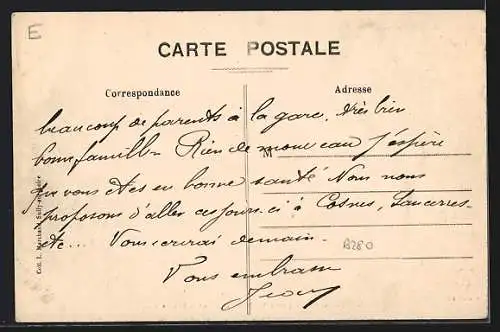 E
CARTE POSTALE
Correspondance
Adresse
beaucoup de parents à la gare, très bien
bonne famille Rien de nouveau J'espère
M
que vous êtes en bonne santé Nous nous
proposons d'aller ces jours-ci à Cosnes, Sancerres
etc... Vous écrirai demain.
B280
Vous embrasse
Coll. L. Marchand, Sully-sur-Loire